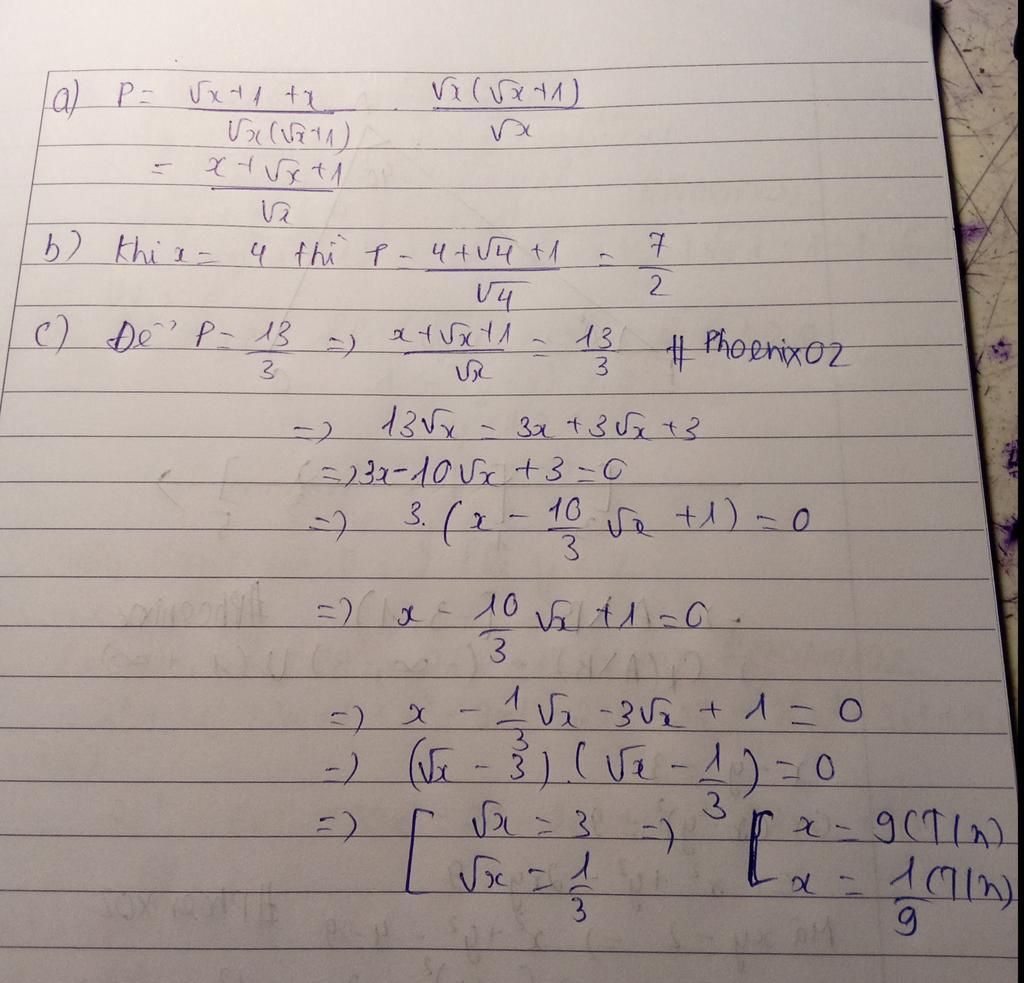 a) P = (√x+1+x)/(√x(√x+1)) . (√x(√x+1))/√x
= (x+√x+1)/√x
b) Khi x = 4 thì P = (4+√4+1)/√4 = 7/2
c) Để P = 13/3 => (x+√x+1)/√x = 13/3 #Phoenix02
=> 13√x = 3x+3√x+3
=> 3x-10√x+3=0
=> 3.(x - 10/3 √x +1) = 0
=> x - 10/3 √x +1 = 0
=> x - 1/3 √x - 3√x + 1 = 0
=> (√x - 3).(√x - 1/3) = 0
=> [ √x = 3 => [ x = 9 (T/n)
√x = 1/3 x = 1/9 (T/n)